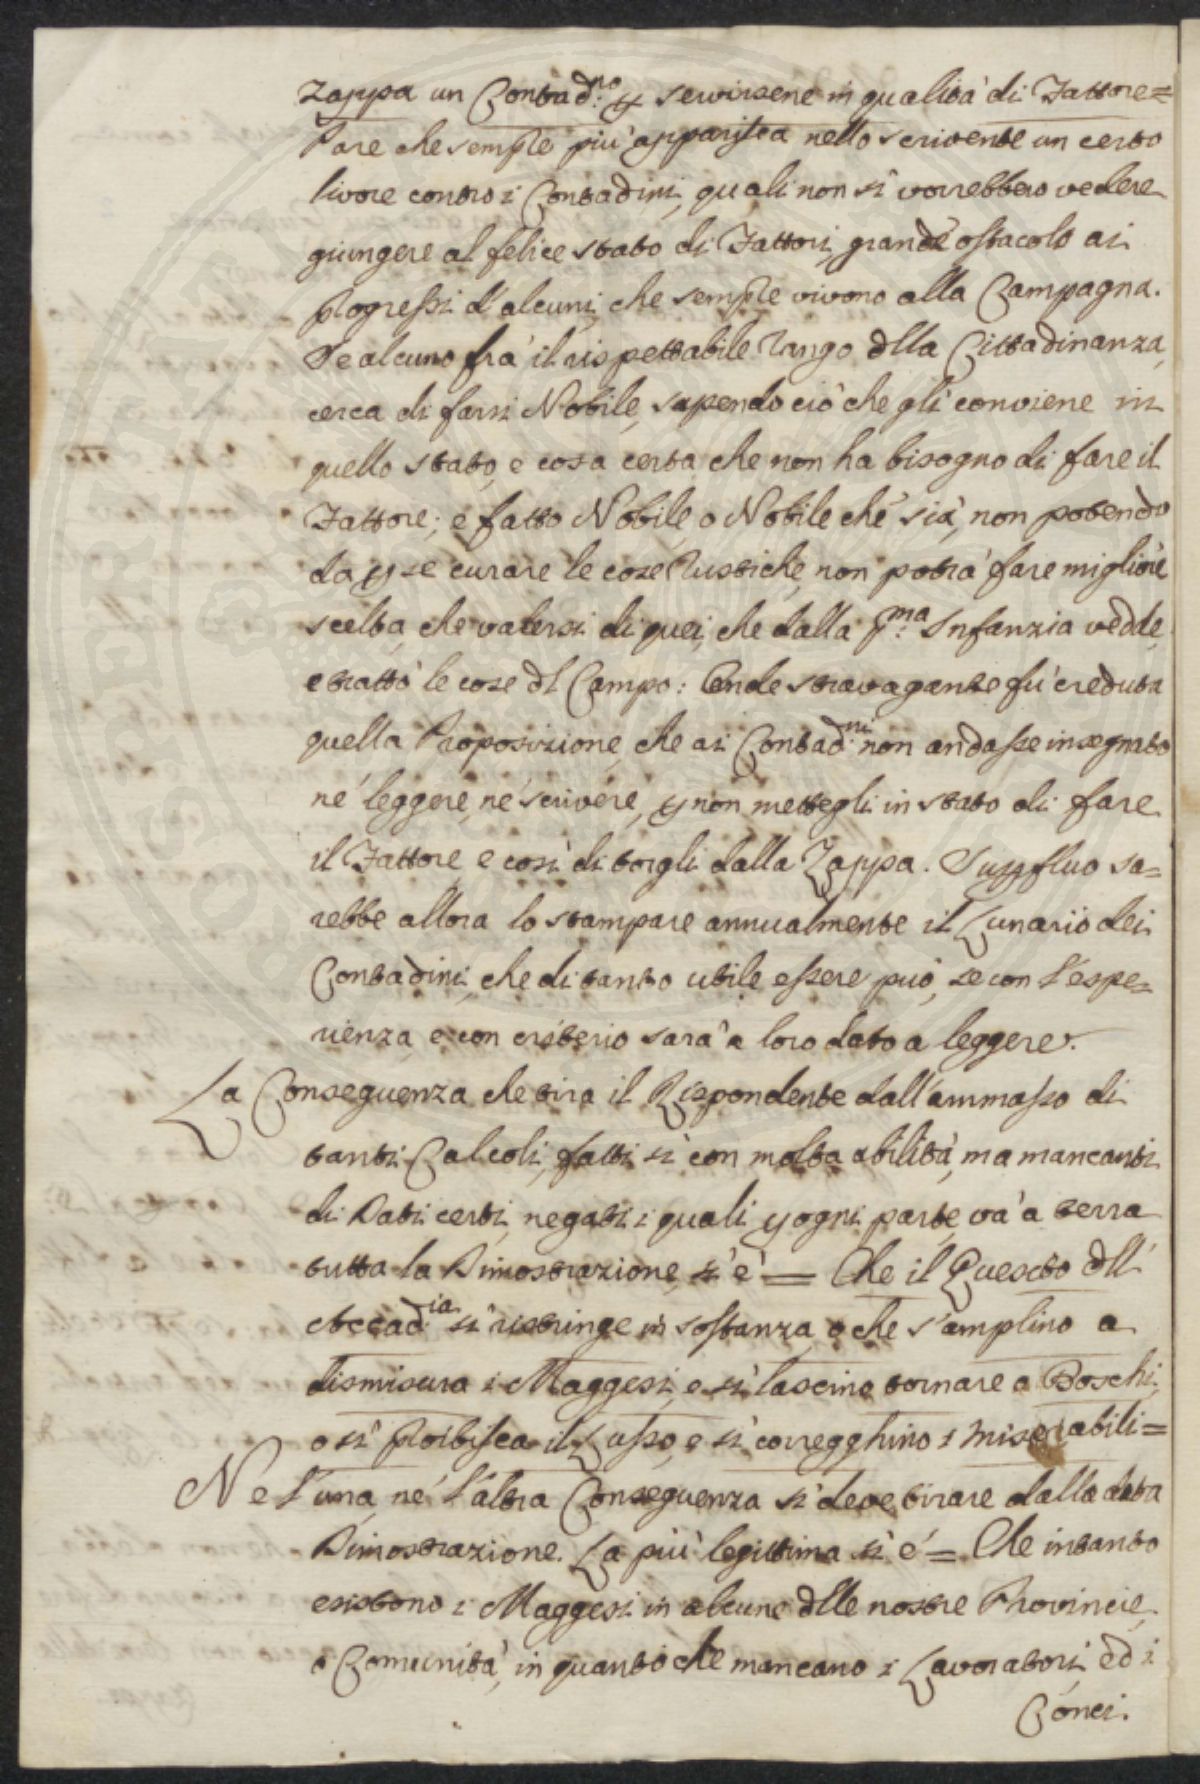 Zappa un Contad:no p servirsene in qualità di Fattore=
Pare che sempre più apparisca nello scrivente un certo
livore contro i Contadini, quali non si vorrebbero vedere
giungere al felice stato di Fattori, grande ostacolo ai
Progressi d'alcuni, che sempre vivono alla Campagna.
Se alcuno frà il rispettabile rango dlla Cittadinanza,
cerca di farsi Nobile, sapendo ciò che gli conviene in
quello stato, e cosa certa che non ha bisogno di fare il
Fattore; e fatto Nobile, o Nobile che sia, non potendo
da p se curare le cose rustiche, non potrà fare migliore
scelta, che valersi di quei, che dalla p:ma Infanzia vedde,
e trattò le cose dl Campo: Onde stravagante fù creduta
quella Proposizione, che ai Contad:ni non andasse insegnato
nè leggere, nè scrivere, p non mettegli in stato di fare
il Fattore, e così di torgli dalla Zappa. Suppfluo sa=
rebbe allora lo stampare annualmente il Lunario dei
Contadini, che di tanto utile essere può, se con l'espe=
rienza, e con criterio sarà a loro dato a leggere.
La Conseguenza che tira il Rispondente dall'ammasso di
tanti Calcoli, fatti sì con molta abilità, ma mancanti
di Dati certi, negati i quali p ogni parte, và a terra
tutta la Dimostrazione, si è = Che il Quesito dll'
Accad:ia si ristringe in sostanza, o che s'amplino a
dismisura i Maggesi, e si lascino tornare a Boschi,
o si Proibisca il Lusso, e si corregghino i miserabili=
Ne l'una, ne l'altra Conseguenza si deve tirare dalla data
Dimostrazione. La più legittima si è = Che intanto
esistono i Maggesi in alcune dlle nostre Provincie,
o Comunità, in quanto che mancano i Lavoratori, ed i
Conci.